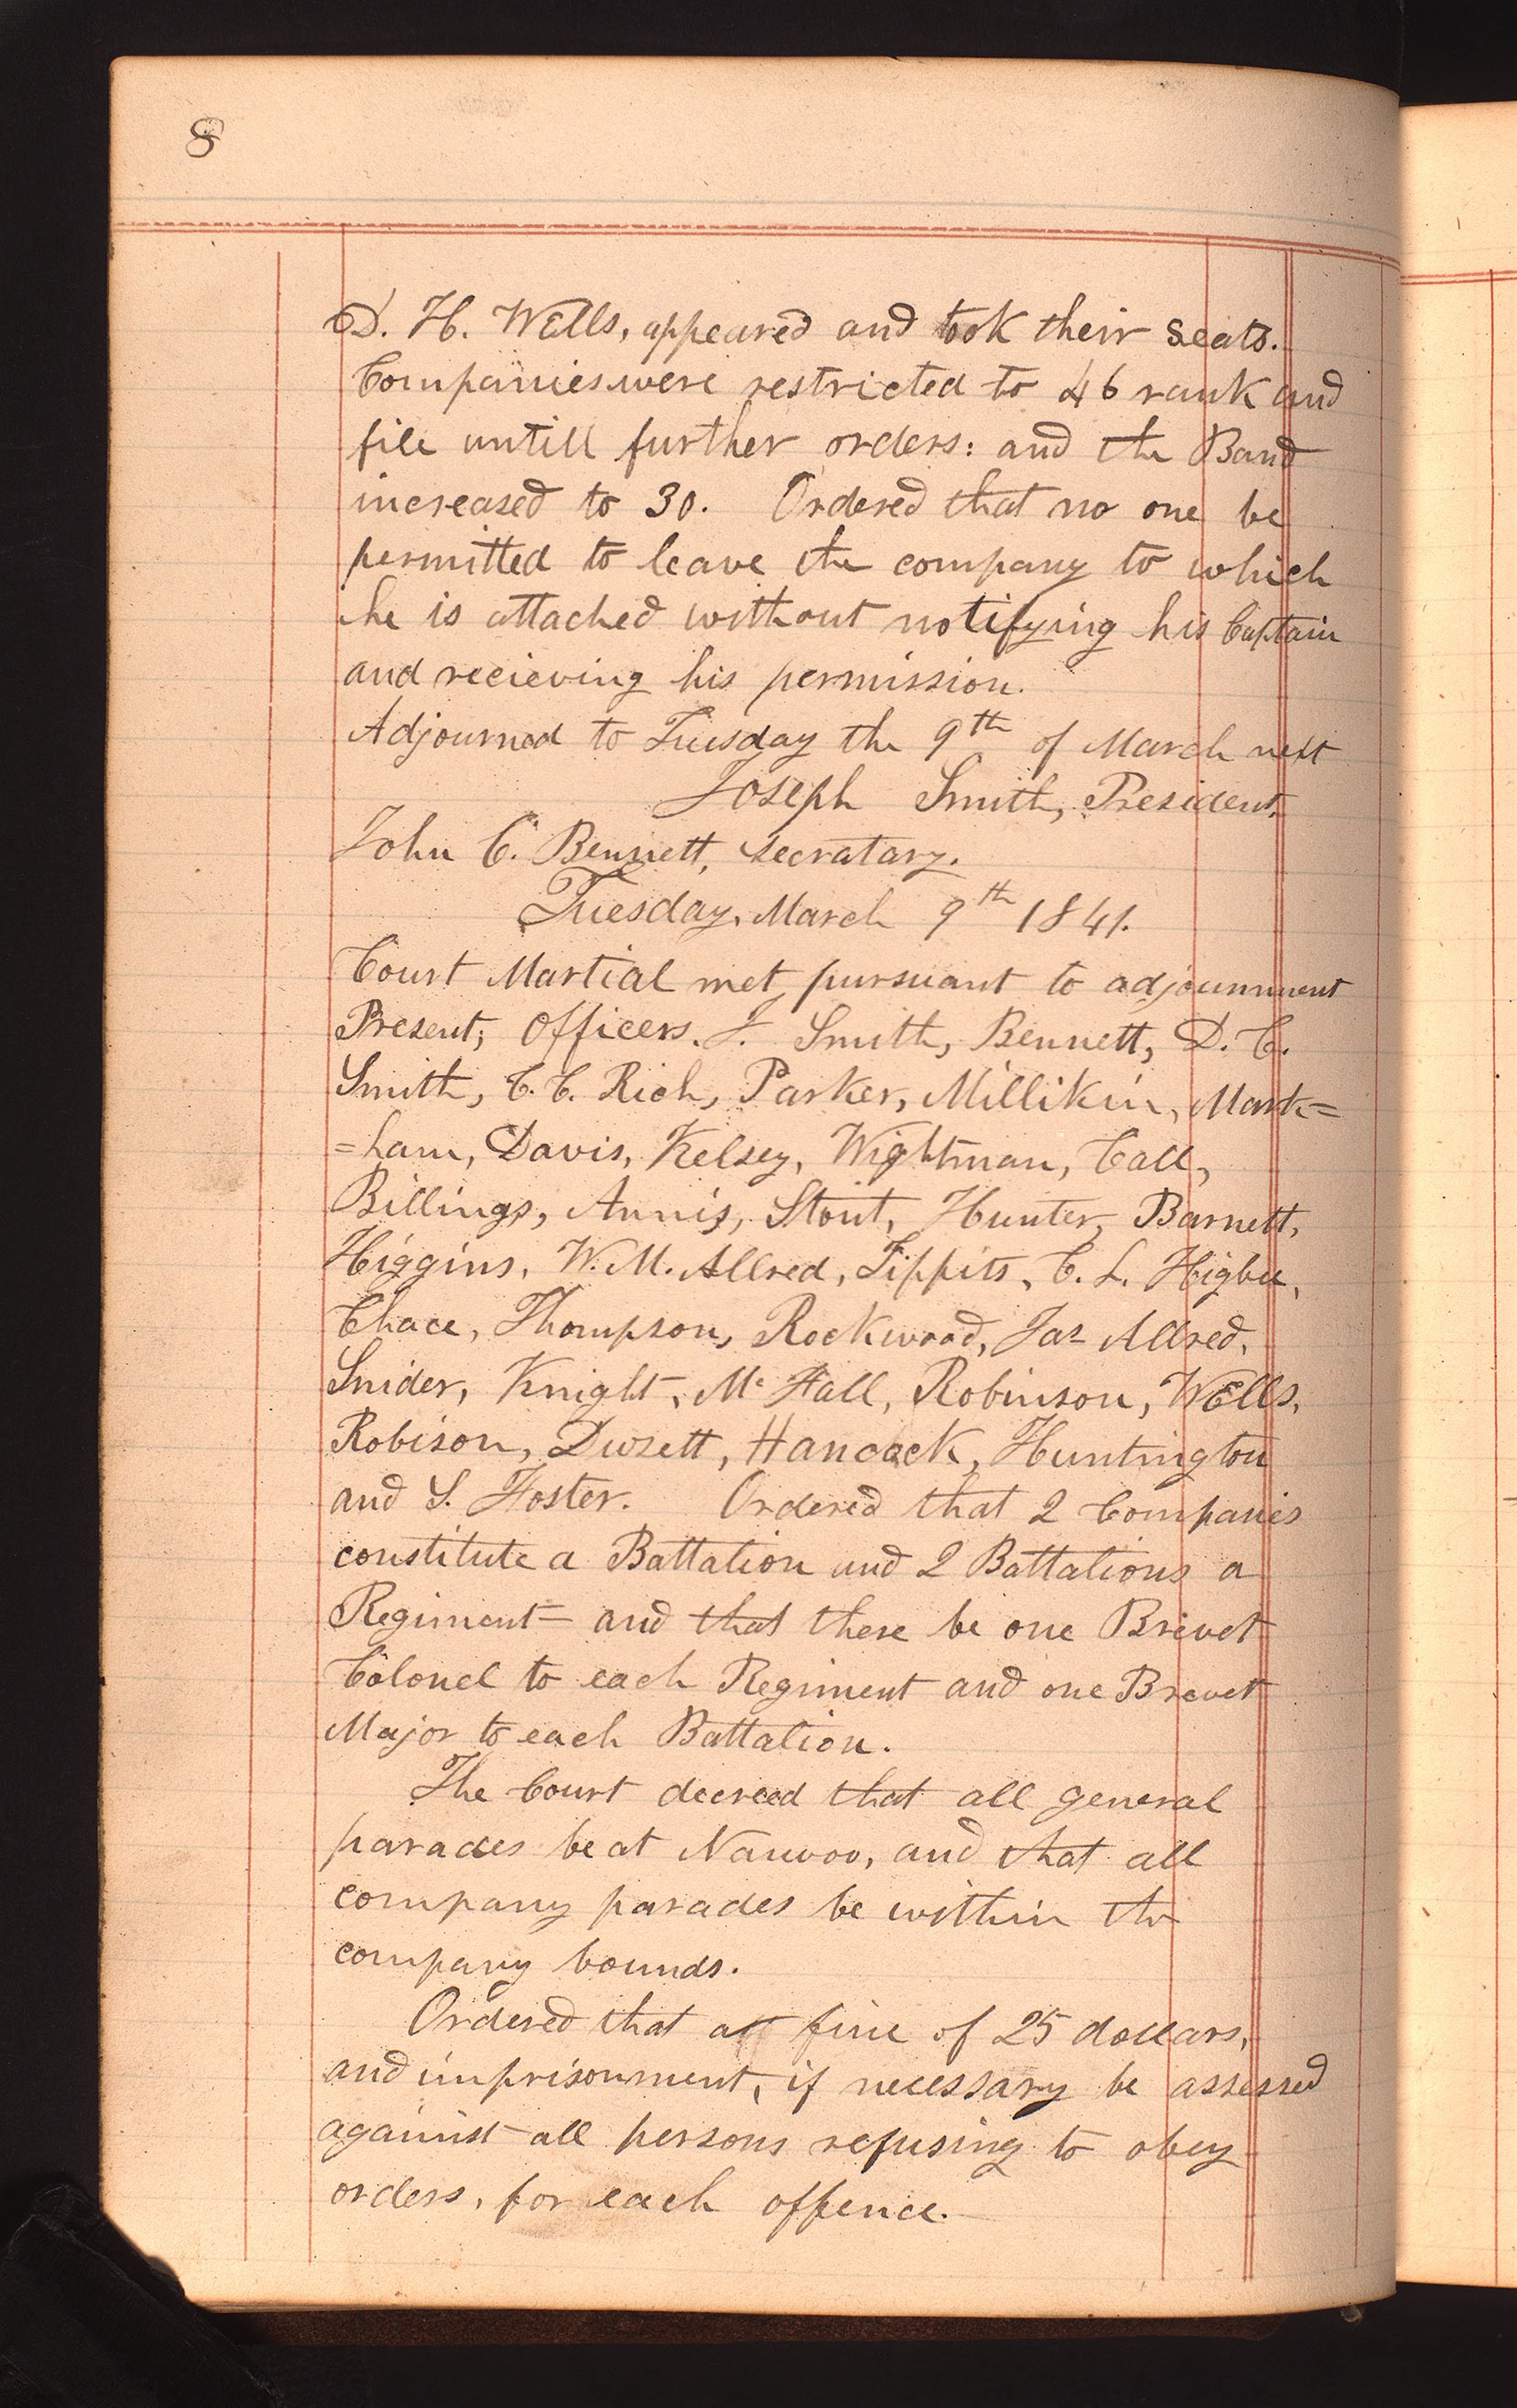 8
D. H. Wells, appeared and took their seats.
Companies were restricted to 46 rank and
file untill further orders: and the Band
increased to 30. Ordered that no one be
permitted to leave the company to which
he is attached without notifying his Captain
and recieving his permission.
Adjourned to Tuesday the 9th of March next
Joseph Smith, President.
John C. Bennett, Secratary.
Tuesday, March 9th 1841.
Court Martial met pursuant to adjournment
Present; Officers. J. Smith, Bennett, D. C.
Smith, C. C. Rich, Parker, Millikin, Mark=
=ham, Davis, Kelsey, Wightman, Call,
Billings, Annis, Stout, Hunter, Barnett,
Higgins, W. M. Allred, Tippits, C. L. Higbee,
Chace, Thompson, Rockwood, Jas Allred,
Snider, Knight, Mc Fall, Robinson, Wells,
Robison, Duzett, Hancock, Huntington
and S. Foster. Ordered that 2 Companies
constitute a Battalion and 2 Battalions a
Regiment— and that there be one Brevet
Colonel to each Regiment and one Brevet
Major to each Battalion.
The Court decreed that all general
parades be at Nauvoo, and that all
company parades be within the
company bounds.
Ordered that a fine of 25 dollars,
and imprisonment, if necessary be assessed
against all persons refusing to obey
orders, for each offence.